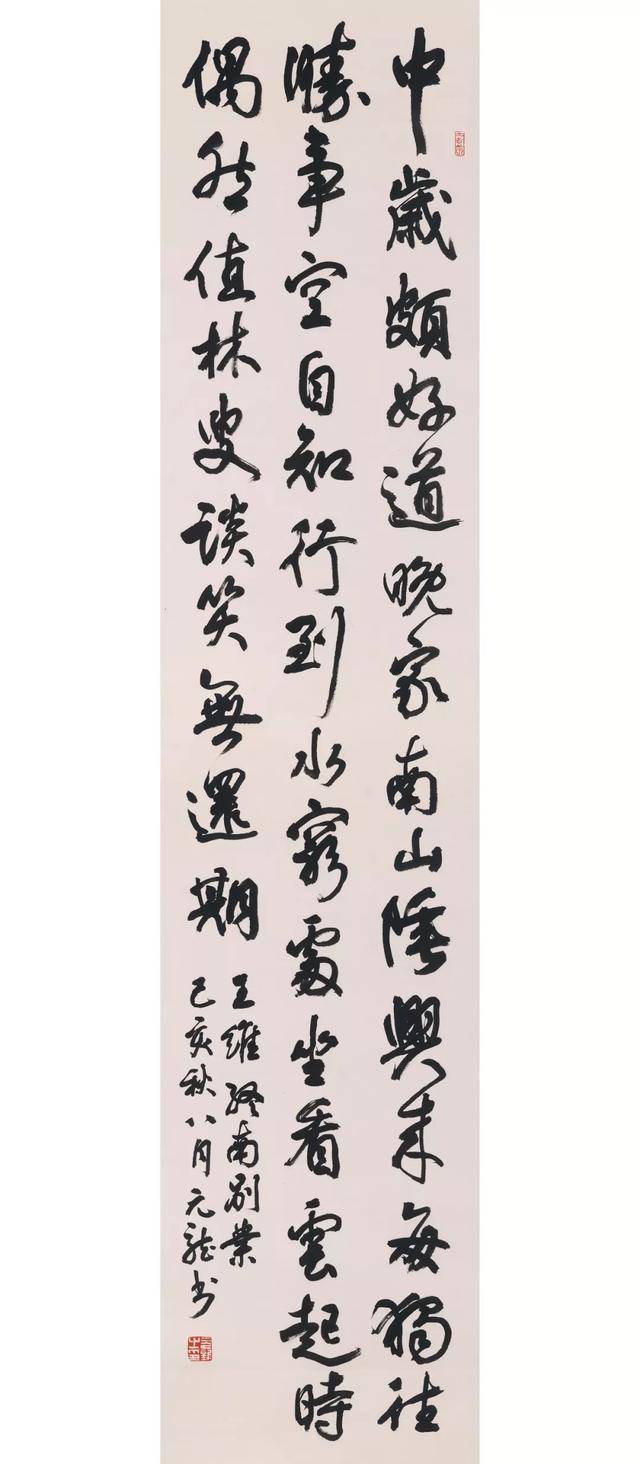 中歲頗好道晚家南山陲興来每獨往
勝事空自知行到水窮處坐看雲起時
偶然值林叟談笑無還期
王維終南別業
己亥秋八月元龍书